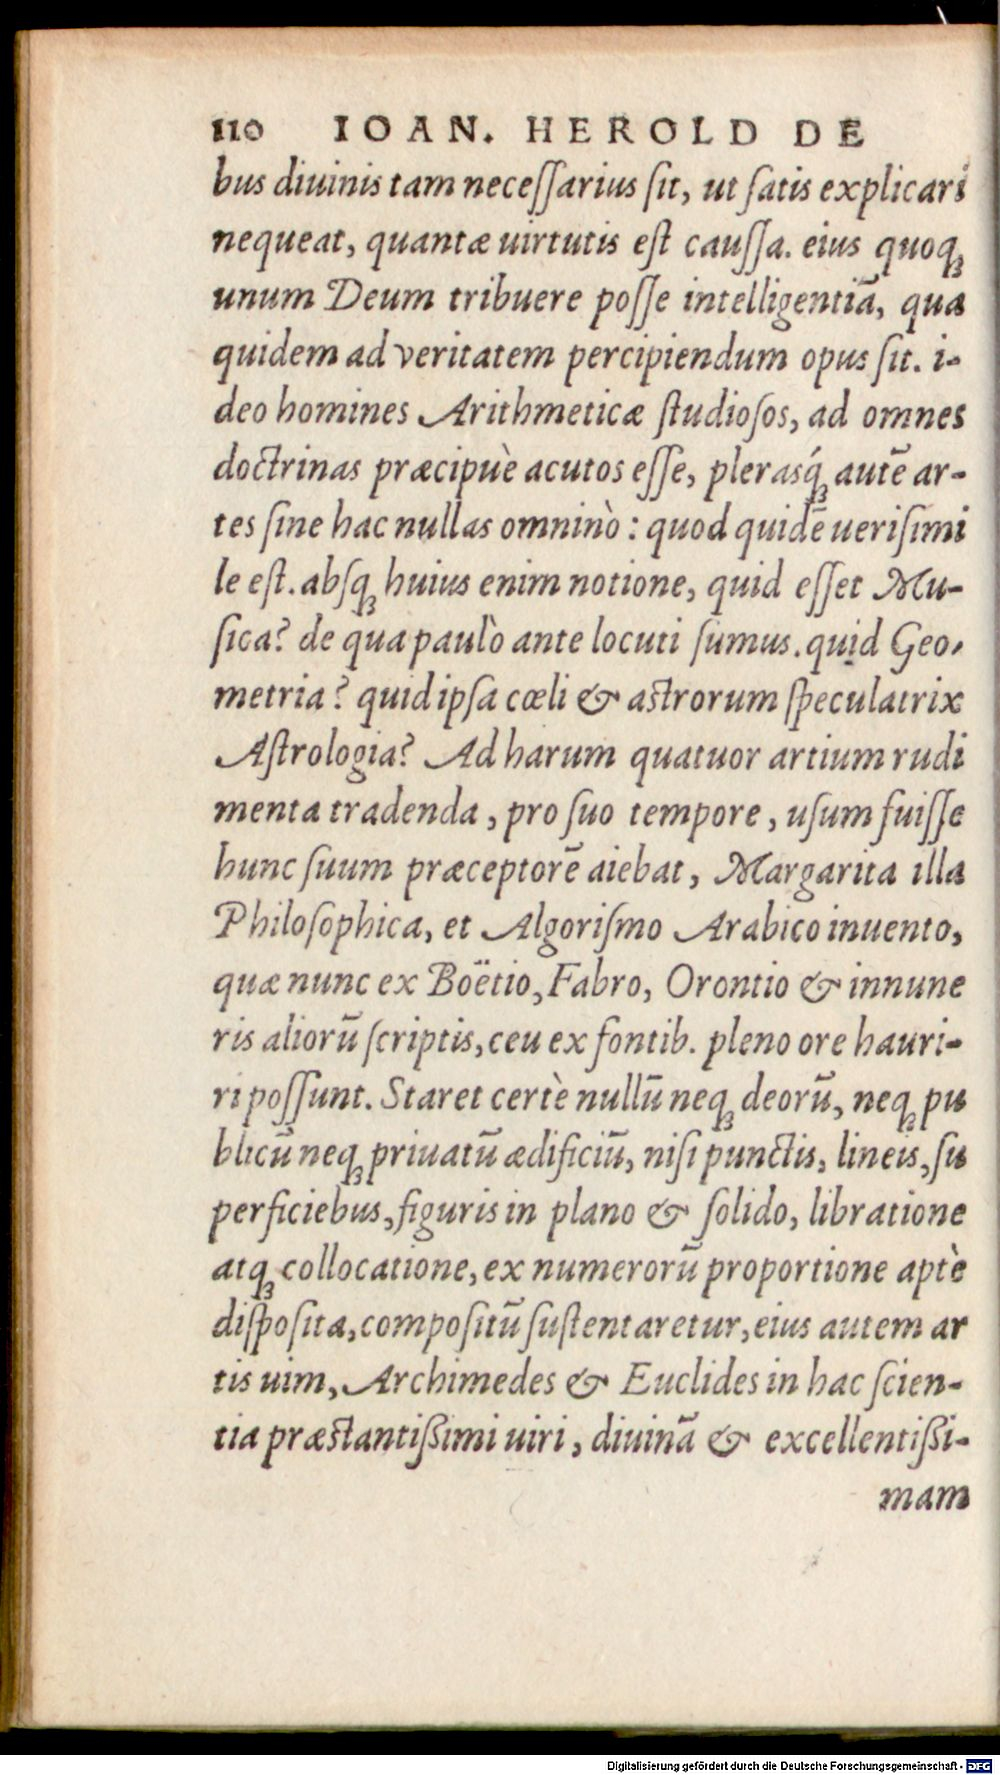 110 IOAN. HEROLD DE
bus diuinis tam neceſſarius ſit, ut ſatis explicari
nequeat, quantæ uirtutis eſt cauſſa. eius quoqꝫ
unum Deum tribuere poſſe intelligentiã, qua
quidem ad veritatem percipiendum opus ſit. i-
deo homines Arithmeticæ ſtudioſos, ad omnes
doctrinas præcipuè acutos eſſe, pleraſq́ꝫ autẽ ar-
tes ſine hac nullas omninò: quod quidẽ ueriſimi
le eſt. abſqꝫ huius enim notione, quid eſſet Mu-
ſica? de qua paulò ante locuti ſumus. quid Geo-
metria? quid ipſa cœli & astrorum ſpeculatrix
Aſtrologia? Ad harum quatuor artium rudi
menta tradenda, pro ſuo tempore, uſum fuiſſe
hunc ſuum præceptorẽ aiebat, Margarita illa
Philoſophica, et Algoriſmo Arabico inuento,
quæ nunc ex Boëtio, Fabro, Orontio & innume
ris aliorũ ſcriptis, ceu ex fontib. pleno ore hauri-
ri poſſunt. Staret certè nullũ neqꝫ deorũ, neqꝫ pu
blicũ neqꝫ priuatũ ædificiũ, niſi punctis, lineis, ſu
perficiebus, figuris in plano & ſolido, libratione
atqꝫ collocatione, ex numerorũ proportione aptè
diſpoſita, compoſitũ ſuſtentaretur, eius autem ar
tis uim, Archimedes & Euclides in hac ſcien-
tia præstantißimi uiri, diuinã & excellentißi-
mam
Digitalisierung gefördert durch die Deutsche Forschungsgemeinschaft - DFG